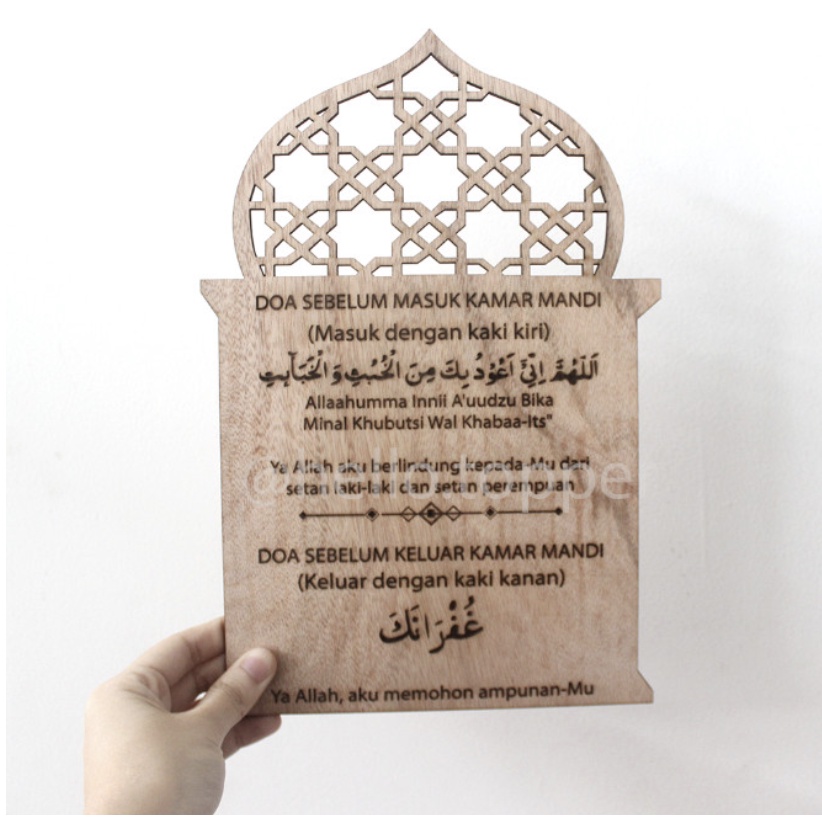 DOA SEBELUM MASUK KAMAR MANDI
(Masuk dengan kaki kiri)
اَللّٰهُمَّ اِنِّيْ اَعُوْذُ بِكَ مِنَ الْخُبُثِ وَالْخَبَآىِٕثِ
Allaahumma Innii A'uudzu Bika
Minal Khubutsi Wal Khabaa-its"
Ya Allah aku berlindung kepada-Mu dari
setan laki-laki dan setan perempuan
DOA SEBELUM KELUAR KAMAR MANDI
(Keluar dengan kaki kanan)
غُفْرَانَكَ
Ya Allah, aku memohon ampunan-Mu